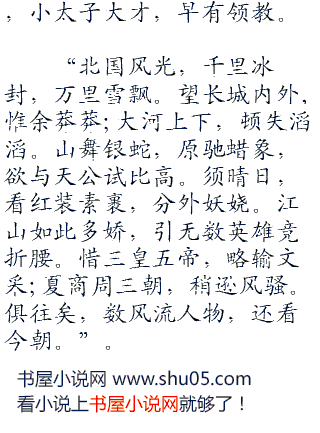 ，小太子大才，早有领教。
“北国风光，千里冰
封，万里雪飘。望长城内外,
惟余莽莽; 大河上下，顿失滔
滔。山舞银蛇，原驰蜡象，
欲与天公试比高。须晴日，
看红装素裹，分外妖娆。江
山如此多娇，引无数英雄竞
折腰。惜三皇五帝，略输文
采; 夏商周三朝，稍逊风骚。
俱往矣，数风流人物，还看
今朝。”。
书屋小说网 www.shu05.com
看小说上书屋小说网就够了！